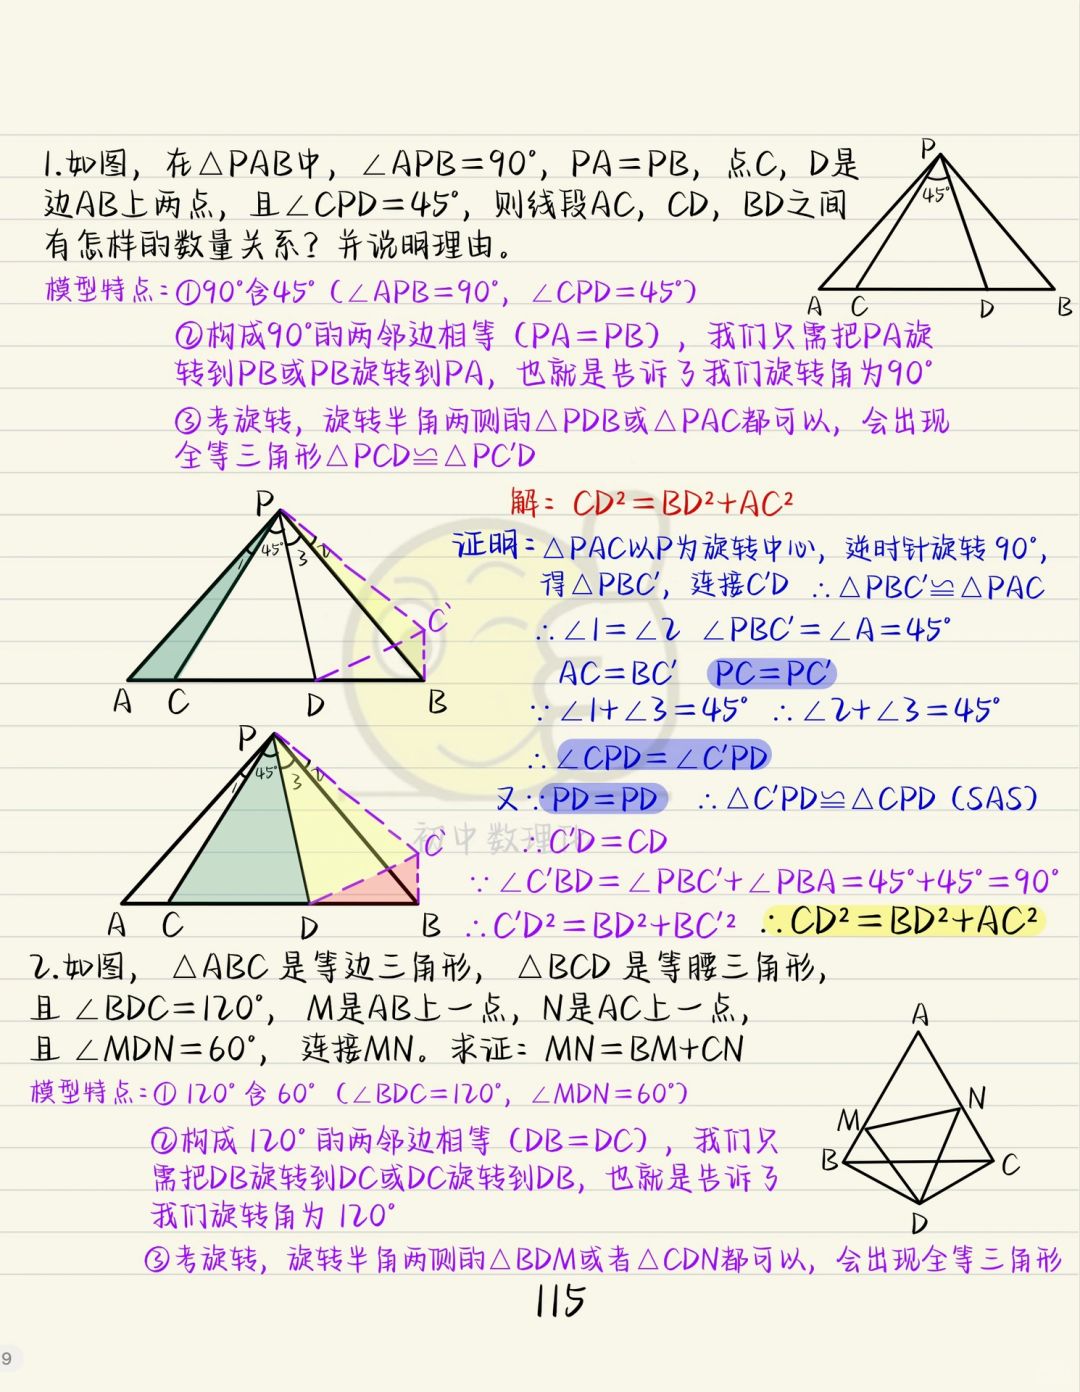 1.如图，在△PAB中，∠APB=90°，PA=PB，点C，D是
边AB上两点，且∠CPD=45°，则线段AC，CD，BD之间
有怎样的数量关系？并说明理由。
P
45°
A C D B
模型特点：①90°含45°（∠APB=90°，∠CPD=45°）
②构成90°的两邻边相等（PA=PB），我们只需把PA旋
转到PB或PB旋转到PA，也就是告诉了我们旋转角为90°
③考旋转，旋转半角两侧的△PDB或△PAC都可以，会出现
全等三角形△PCD≌△PC'D
P
1 45° 3 2
C'
A C D B
解：CD²=BD²+AC²
证明：△PAC以P为旋转中心，逆时针旋转90°，
得△PBC'，连接C'D ∴△PBC'≌△PAC
∴∠1=∠2 ∠PBC'=∠A=45°
AC=BC' PC=PC'
∵∠1+∠3=45° ∴∠2+∠3=45°
∴∠CPD=∠C'PD
又∵PD=PD ∴△C'PD≌△CPD（SAS）
∴C'D=CD
∵∠C'BD=∠PBC'+∠PBA=45°+45°=90°
∴C'D²=BD²+BC'² ∴CD²=BD²+AC²
P
1 45° 3 2
C'
A C D B
初中数理化
2.如图，△ABC是等边三角形，△BCD是等腰三角形，
且∠BDC=120°，M是AB上一点，N是AC上一点，
且∠MDN=60°，连接MN。求证：MN=BM+CN
A
N
M
B C
D
模型特点：①120°含60°（∠BDC=120°，∠MDN=60°）
②构成120°的两邻边相等（DB=DC），我们只
需把DB旋转到DC或DC旋转到DB，也就是告诉了
我们旋转角为120°
③考旋转，旋转半角两侧的△BDM或者△CDN都可以，会出现全等三角形
115
9